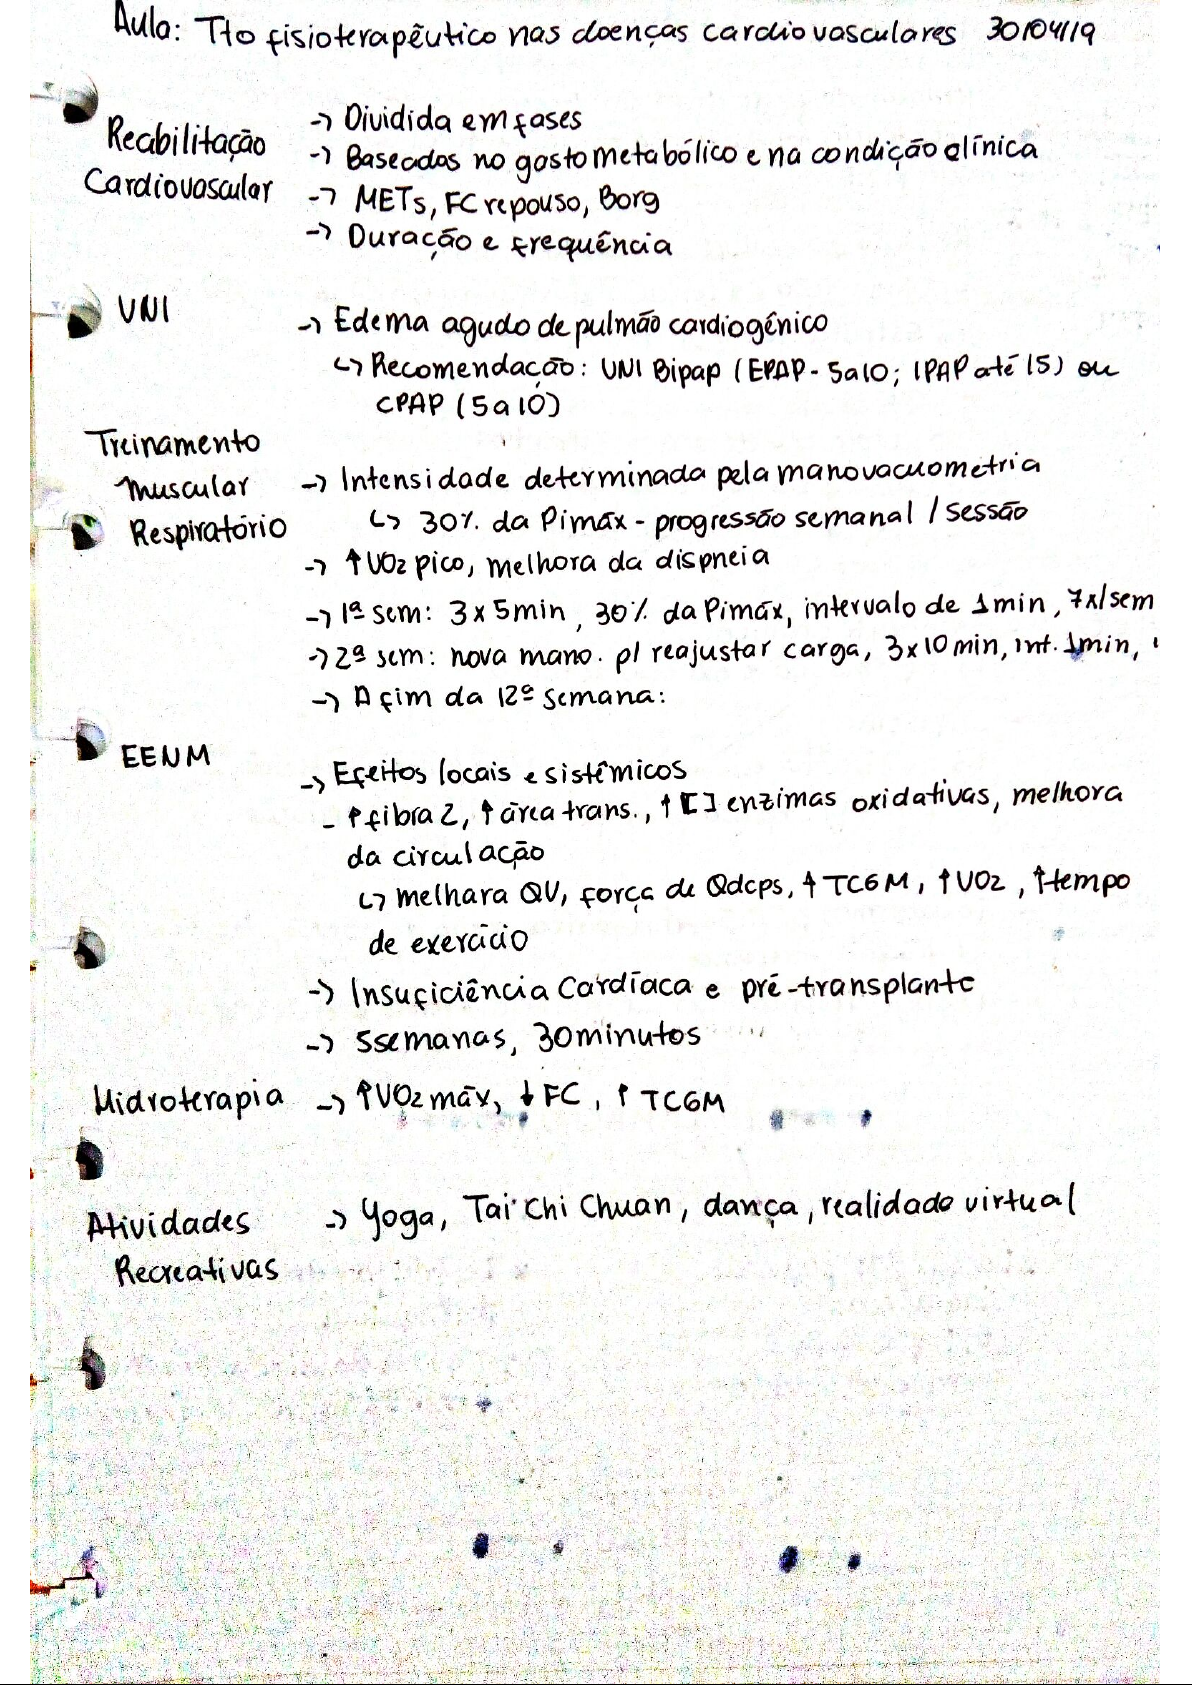 Aula: Tto fisioterapêutico nas doenças cardiovasculares 30/04/19
Reabilitação
Cardiovascular
-> Dividida em fases
-> Baseados no gasto metabólico e na condição clínica
-> METs, FC repouso, Borg
-> Duração e frequência
VNI
-> Edema agudo de pulmão cardiogênico
↳ Recomendação: VNI Bipap (EPAP - 5 a 10; IPAP até 15) ou
CPAP (5 a 10)
Treinamento
Muscular
Respiratório
-> Intensidade determinada pela manovacuometria
↳ 30% da Pimáx - progressão semanal / sessão
-> ↑VO2 pico, melhora da dispneia
-> 1ª sem: 3 x 5min, 30% da Pimáx, intervalo de 1min, 7x/sem
-> 2ª sem: nova mano. p/ reajustar carga, 3x10 min, int. 1min,
-> A fim da 12ª semana:
EENM
-> Efeitos locais e sistêmicos
- ↑fibra 2, ↑área trans., ↑[] enzimas oxidativas, melhora
da circulação
↳ melhara QV, força de Qdcps, ↑TC6M, ↑VO2, ↑tempo
de exercício
-> Insuficiência Cardíaca e pré-transplante
-> 5semanas, 30minutos
Hidroterapia -> ↑VO2 máx, ↓FC, ↑TC6M
Atividades
Recreativas
-> Yoga, Tai Chi Chuan, dança, realidade virtual